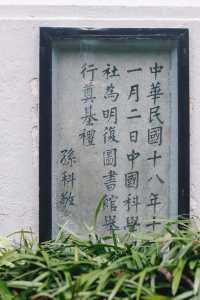 中華民國十八年十
一月二日中國科學
社為明復圖書館舉
行奠基禮
孫科敬